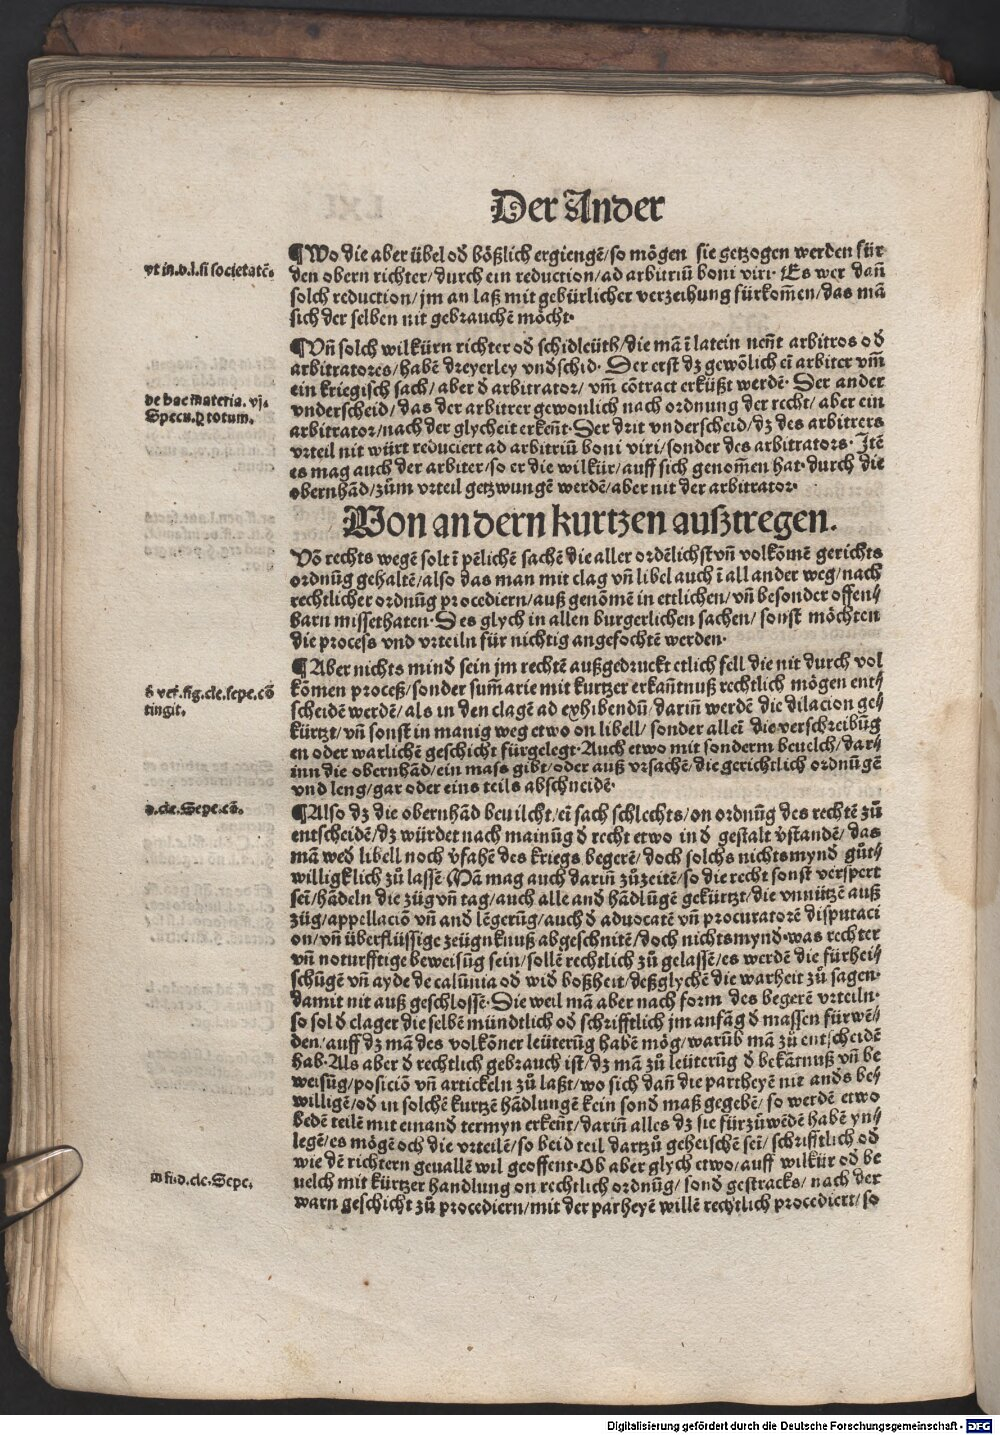 Der Ander
¶Wo die aber übel od bößlich ergiengē/so mögen sie getzogen werden für
vt in.d.l.si societatē.
den obern richter/durch ein reduction/ad arbitriū boni viri· Es wer dañ
solch reduction/jm an laß mit gebürlicher verzeihung fürkom̄en/das mā
sich der selben nit gebrauchē möcht·
¶Vñ solch wilkürn richter od schidleüth/die mā ī latein neñt arbitros od
arbitratores/habē dreyerley vndschid· Der erst dz gewōlich eī arbiter vm̄
ein kriegisch sach/aber d arbitrator/vm̄ cōtract erküßt werdē· Der ander
de hac materia. vj.
vnderscheid/das der arbitrer gewonlich nach ordnung der recht/aber ein
Specu.ꝑ totum.
arbitrator/nach der glycheit erkeñt·Der drit vnderscheid/dz des arbitrers
vrteil nit würt reduciert ad arbitriū boni viri/sonder des arbitrators· Itē
es mag auch der arbiter/so er die wilkür/auff sich genom̄en hat·durch die
obernhād/zům vrteil getzwungē werdē/aber nit der arbitrator·
Von andern kurtzen außtregen.
Vō rechts wegē solt ī pēlichē sachē die aller ordēlichst vñ volkōmē gerichts
ordnūg gehaltē/also das man mit clag vñ libel auch ī all ander weg/nach
rechtlicher ordnūg procediern/auß genōmē in ettlichen/vñ besonder offen⸗
barn missethaten·Des glych in allen burgerlichen sachen/sonst möchten
die process vnd vrteiln für nichtig angefochtē werden·
¶Aber nichts mind sein jm rechtē außgedruckt etlich fell die nit durch vol
kōmen proceß/sonder sum̄arie mit kurtzer erkañtnuß rechtlich mögen ent⸗
d ver.sig.cle.sepe.cō
tingit.
scheidē werdē/als in den clagē ad exhibendū/dariñ werdē die dilacion ge⸗
kürtzt/vñ sonst in manig weg etwo on libell/sonder alleī die verschreibūg
en oder warlichē geschicht fürgelegt·Auch etwo mit sonderm beuelch/dar⸗
inn die obernhād/ein mass gibt/oder auß vrsachē/die gerichtlich ordnūgē
vnd leng/gar oder eins teils abschneidē·
¶Also dz die obernhād beuilcht/eī sach schlechts/on ordnūg des rechtē zů
d.cle.Sepe.cō.
entscheidē/dz würdet nach mainūg d recht etwo in d gestalt vstandē/das
mā wed libell noch vfahē des kriegs begerē/doch solchs nichtsmynd gůt⸗
willigklich zů lassē·Mā mag auch dariñ zůzeitē/so die recht sonst verspert
seī/hādeln die züg vñ tag/auch alle and hādlūgē gekürtzt/die vnnützē auß
züg/appellaciō vñ and lēgerūg/auch d aduocatē vñ procuratorē disputaci
on/vñ überflüssige zeügknuß abgeschnitē/doch nichtsmynd·was rechter
vñ noturfftige beweisūg sein/sollē rechtlich zů gelassē/es werdē die fürhei⸗
schūgē vñ ayde de calūnia od wid boßheit/deßglychē die warheit zů sagen·
damit nit auß geschlossē·Die weil mā aber nach form des begerē vrteiln·
so sol d clager die selbē mündtlich od schrifftlich jm anfāg d massen fürwē⸗
den/auff dz mā des volkōner leüterūg habē mög/warūb mā zů entscheidē
hab·Als aber d rechtlich gebrauch ist/dz mā zů leüterūg d bekātnuß vñ be
weisūg/posiciō vñ artickeln zů laßt/wo sich dañ die partheyē nit ands be⸗
willigē/od in solchē kurtzē hādlungē kein sond maß gegebē/so werdē etwo
bedē teilē mit einand termyn erkeñt/dariñ alles dz sie fürzůwēdē habē yn⸗
legē/es mögē och die vrteilē/so beid teil dartzů geheischē seī/schrifftlich od
wie dē richtern geuallē wil geoffent·Ob aber glych etwo/auff wilkür od be
uelch mit kürtzer handlung on rechtlich ordnūg/sond gestracks/nach der
fi.d.cle.Sepe.
warn geschicht zů procediern/mit der parheyē willē rechtlich procediert/so
Digitalisierung gefördert durch die Deutsche Forschungsgemeinschaft - DFG